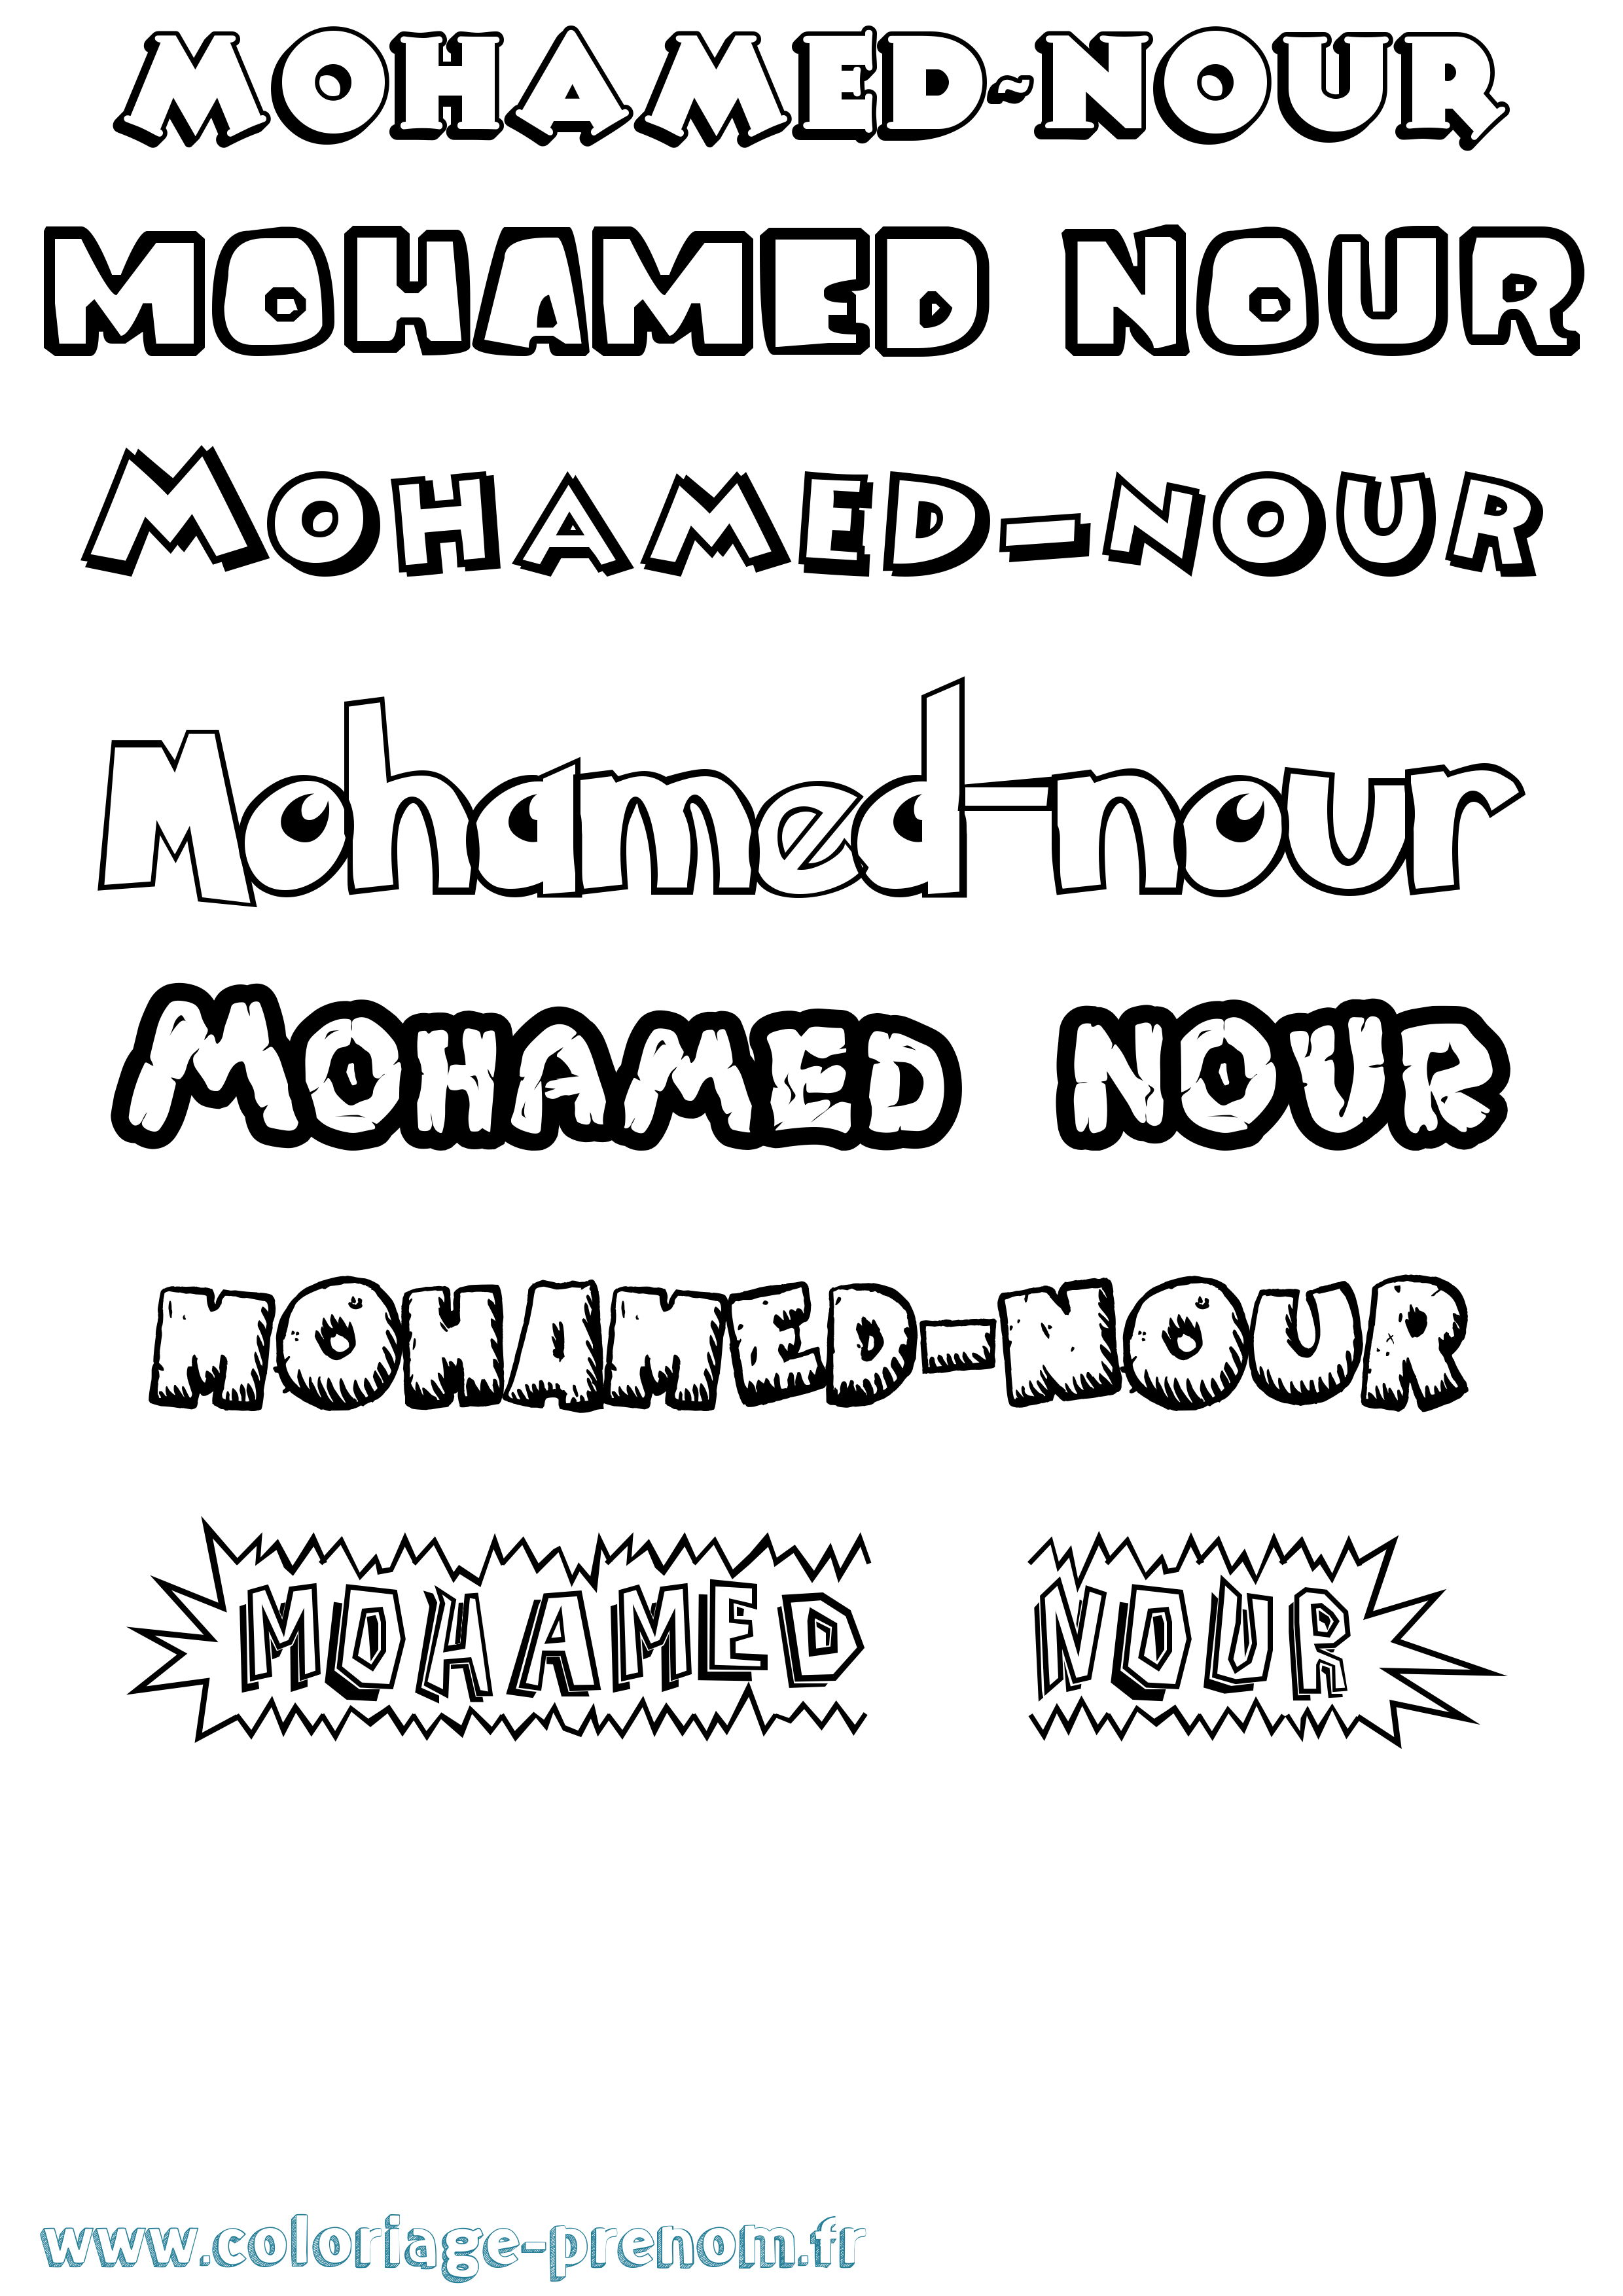 MOHAMED-NOUR
MOHAMED NOUR
MOHAMED-NOUR
Mohamed-nour
MOHAMED NOUR
MOHAMED-NOUR
MOHAMED NOUR
www.coloriage-prenom.fr